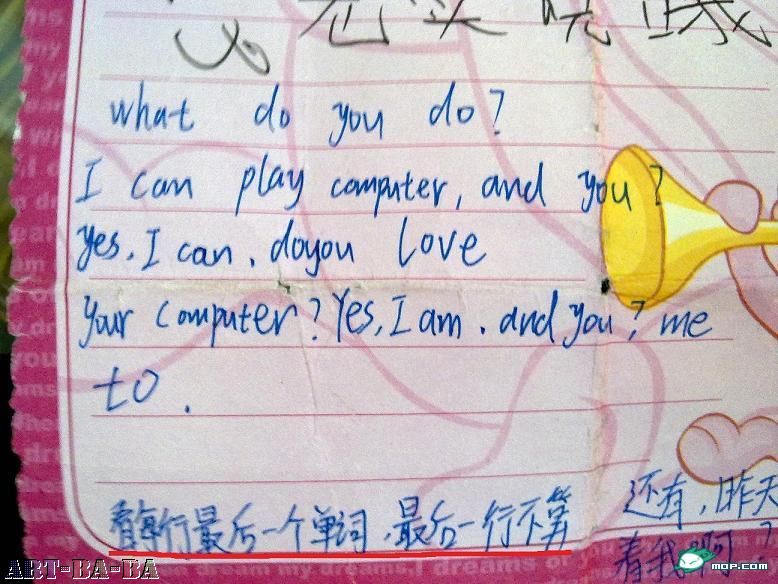 what do you do?
I can play computer, and you?
yes, I can. do you love
your computer? Yes, I am. and you? me
to.
看每行最后一个单词,最后一行不算
还有,昨天
着我啊?
ART-BA-BA
mop.com